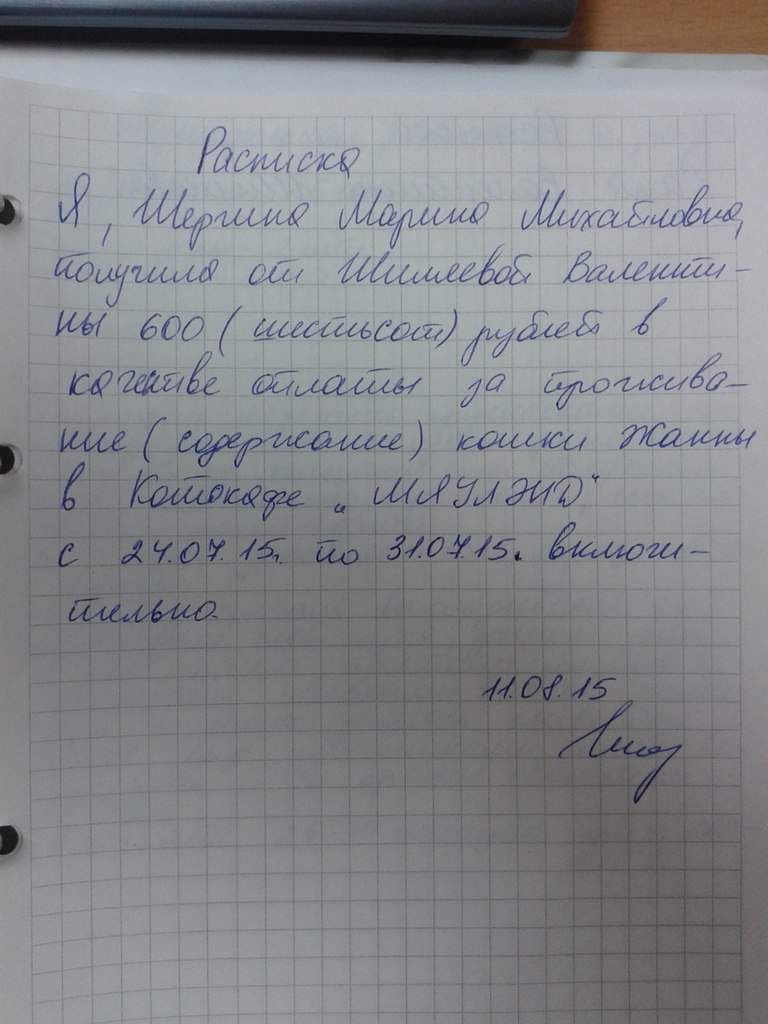 Расписка
Я, Шергина Марина Михайловна,
получила от Шиляевой Валенти-
ны 600 (шестьсот) рублей в
качестве оплаты за прожива-
ние (содержание) кошки Жанны
в Котокафе „МЯУЛЭНД“
с 24.07.15г. по 31.07.15. включи-
тельно.
11.08.15